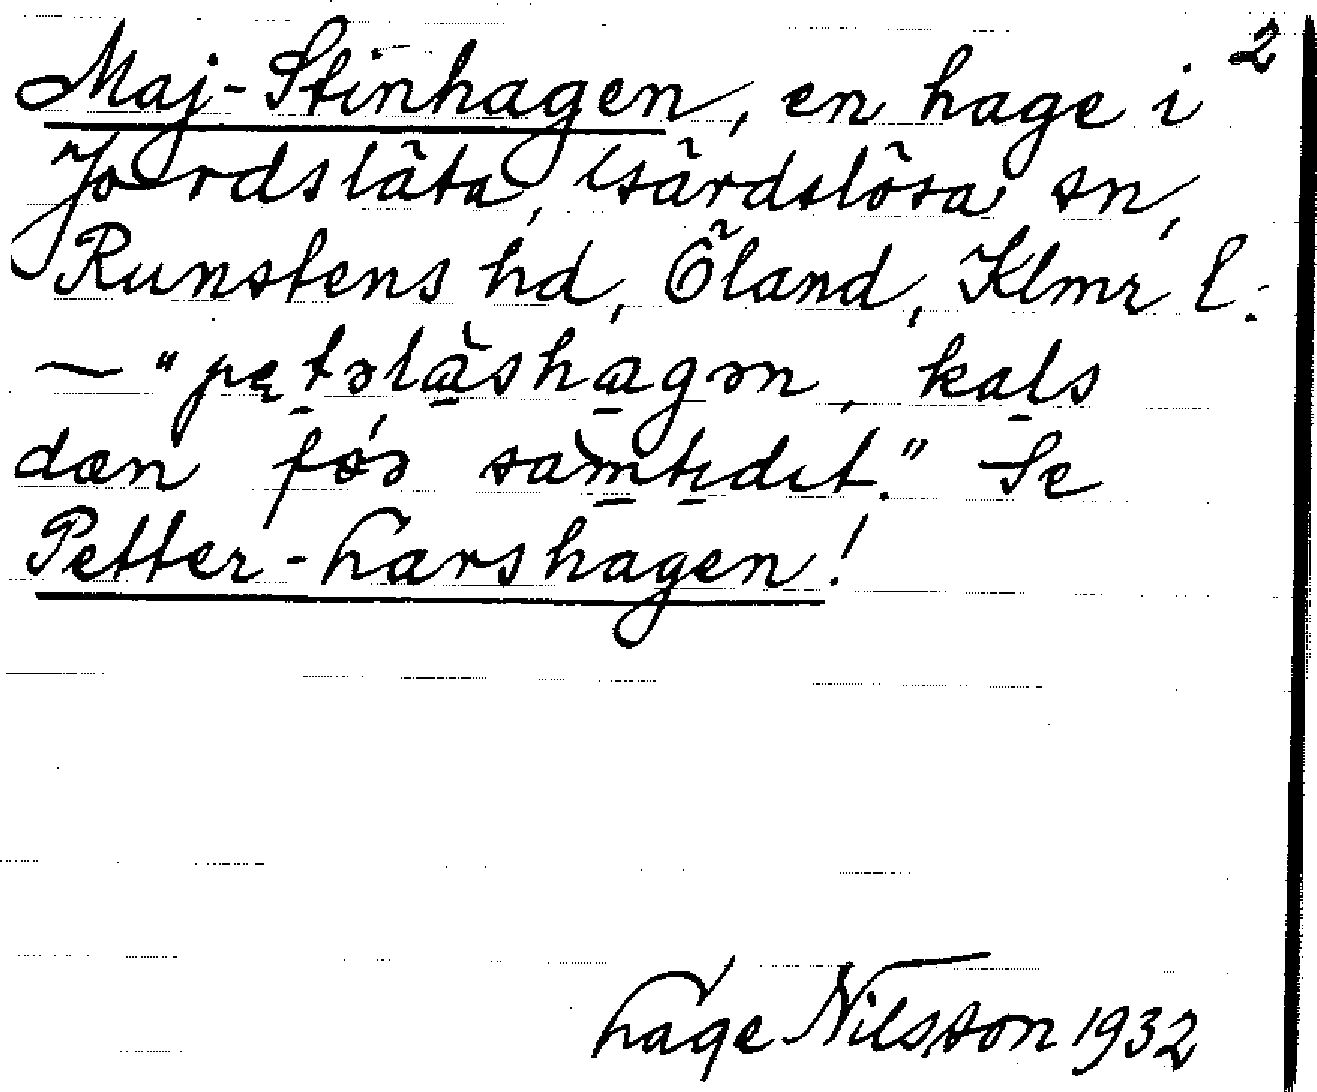 Maj-Stinhagen, en hage i 2
Jordsläta, Gärdslösa sn,
Runstens hd, Öland, Klmr l.
— "pętəlàshagən, kals
dæn før samtıdıt." Se
Petter-Larshagen!
Lage Nilsson 1932